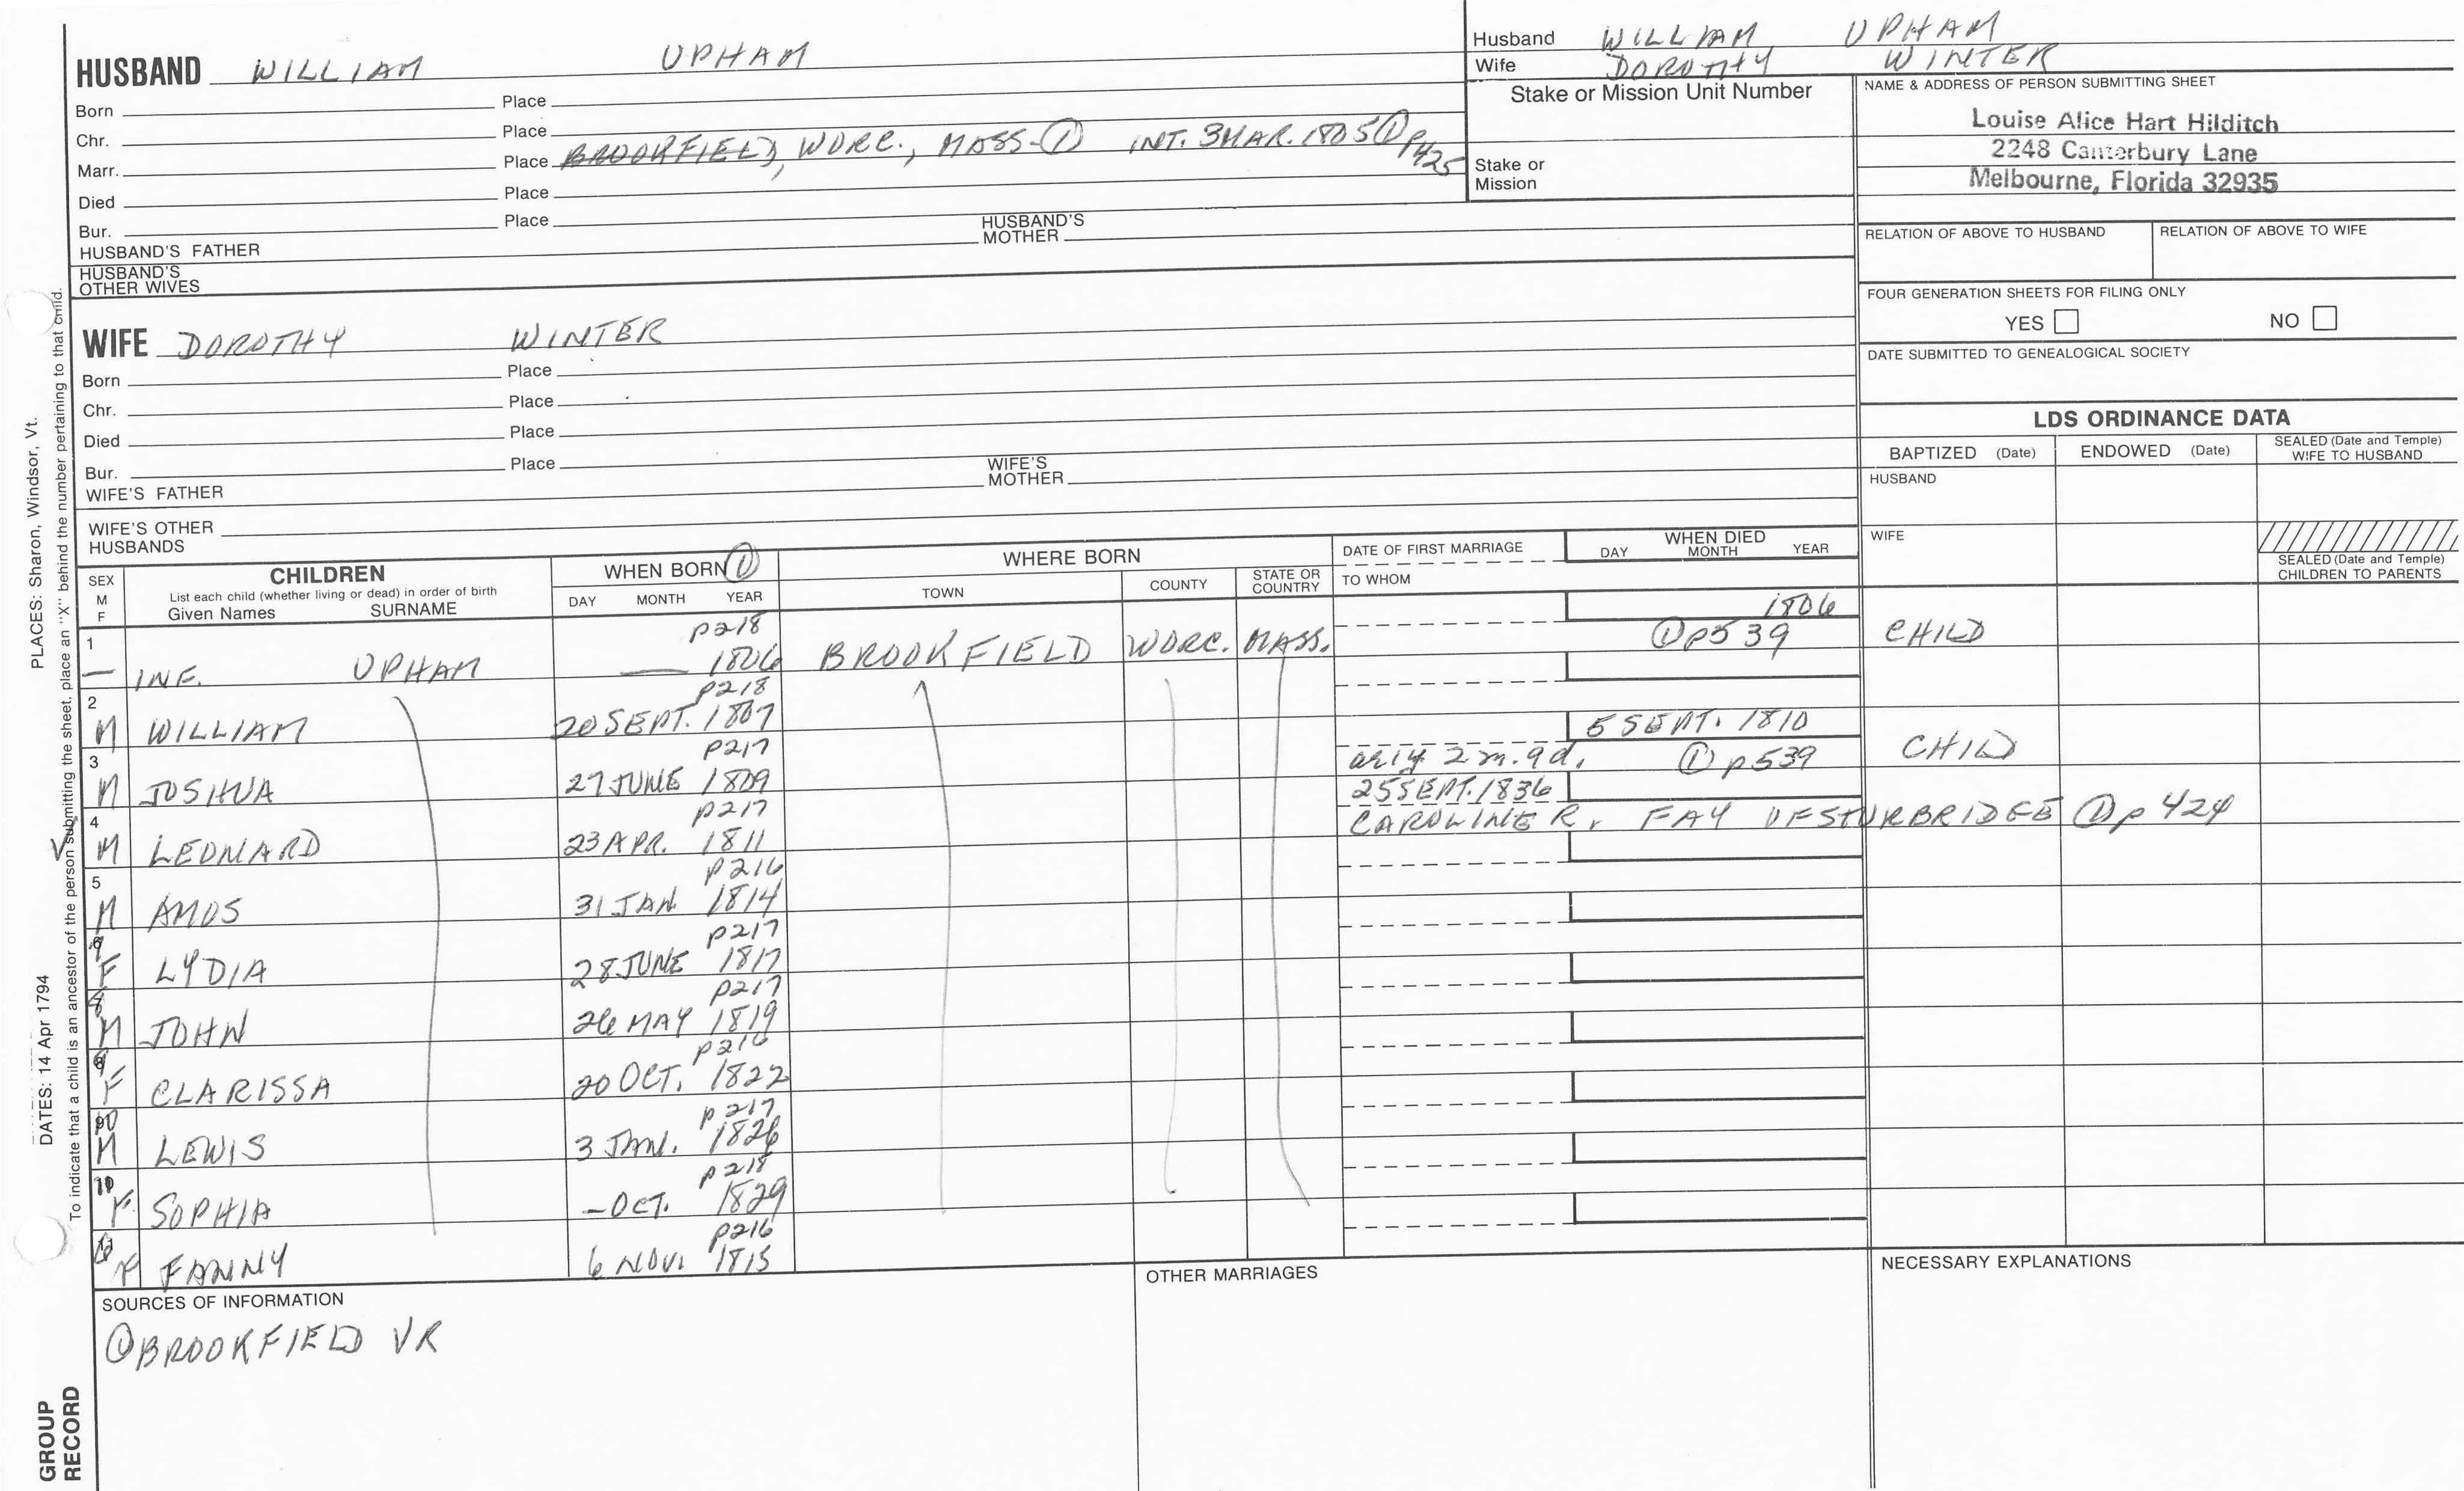 HUSBAND WILLIAM UPHAM
Born Place
Chr. Place
Marr. Place BROOKFIELD, WORC., MASS-① INT. 3 MAR. 1805 ① p425
Died Place
Bur. Place
HUSBAND'S FATHER HUSBAND'S MOTHER
HUSBAND'S OTHER WIVES
Husband WILLIAM UPHAM
Wife DOROTHY WINTER
Stake or Mission Unit Number
Stake or Mission
NAME & ADDRESS OF PERSON SUBMITTING SHEET
Louise Alice Hart Hilditch
2248 Canterbury Lane
Melbourne, Florida 32935
RELATION OF ABOVE TO HUSBAND RELATION OF ABOVE TO WIFE
FOUR GENERATION SHEETS FOR FILING ONLY
YES NO
DATE SUBMITTED TO GENEALOGICAL SOCIETY
WIFE DOROTHY WINTER
Born Place
Chr. Place
Died Place
Bur. Place
WIFE'S FATHER WIFE'S MOTHER
WIFE'S OTHER HUSBANDS
LDS ORDINANCE DATA
BAPTIZED (Date) ENDOWED (Date) SEALED (Date and Temple) WIFE TO HUSBAND
HUSBAND
WIFE
SEALED (Date and Temple) CHILDREN TO PARENTS
SEX M F
CHILDREN
List each child (whether living or dead) in order of birth
Given Names SURNAME
WHEN BORN ①
DAY MONTH YEAR
WHERE BORN
TOWN COUNTY STATE OR COUNTRY
DATE OF FIRST MARRIAGE
TO WHOM
WHEN DIED
DAY MONTH YEAR
1 — INF. UPHAM — 1806 p218 BROOKFIELD WORC. MASS. 1806 ① p539 CHILD
2 M WILLIAM 20 SEPT. 1807 p218
3 M JOSHUA 27 JUNE 1809 p217 5 SEPT. 1810 a 1 y 2 m. 9 d. ① p539 CHILD
4 M LEONARD 23 APR. 1811 p217 25 SEPT. 1836 CAROLINE R. FAY OF STURBRIDGE ① p424
5 M AMOS 31 JAN 1814 p216
F LYDIA 28 JUNE 1817 p217
8 M JOHN 26 MAY 1819 p217
F CLARISSA 20 OCT. 1822 p216
M LEWIS 3 JAN. 1826 p217
F SOPHIA — OCT. 1829 p218
F FANNY 6 NOV. 1815 p216
SOURCES OF INFORMATION
① BROOKFIELD VR
OTHER MARRIAGES
NECESSARY EXPLANATIONS
PLACES: Sharon, Windsor, Vt.
DATES: 14 Apr 1794
To indicate that a child is an ancestor of the person submitting the sheet, place an "X" behind the number pertaining to that child.
GROUP RECORD